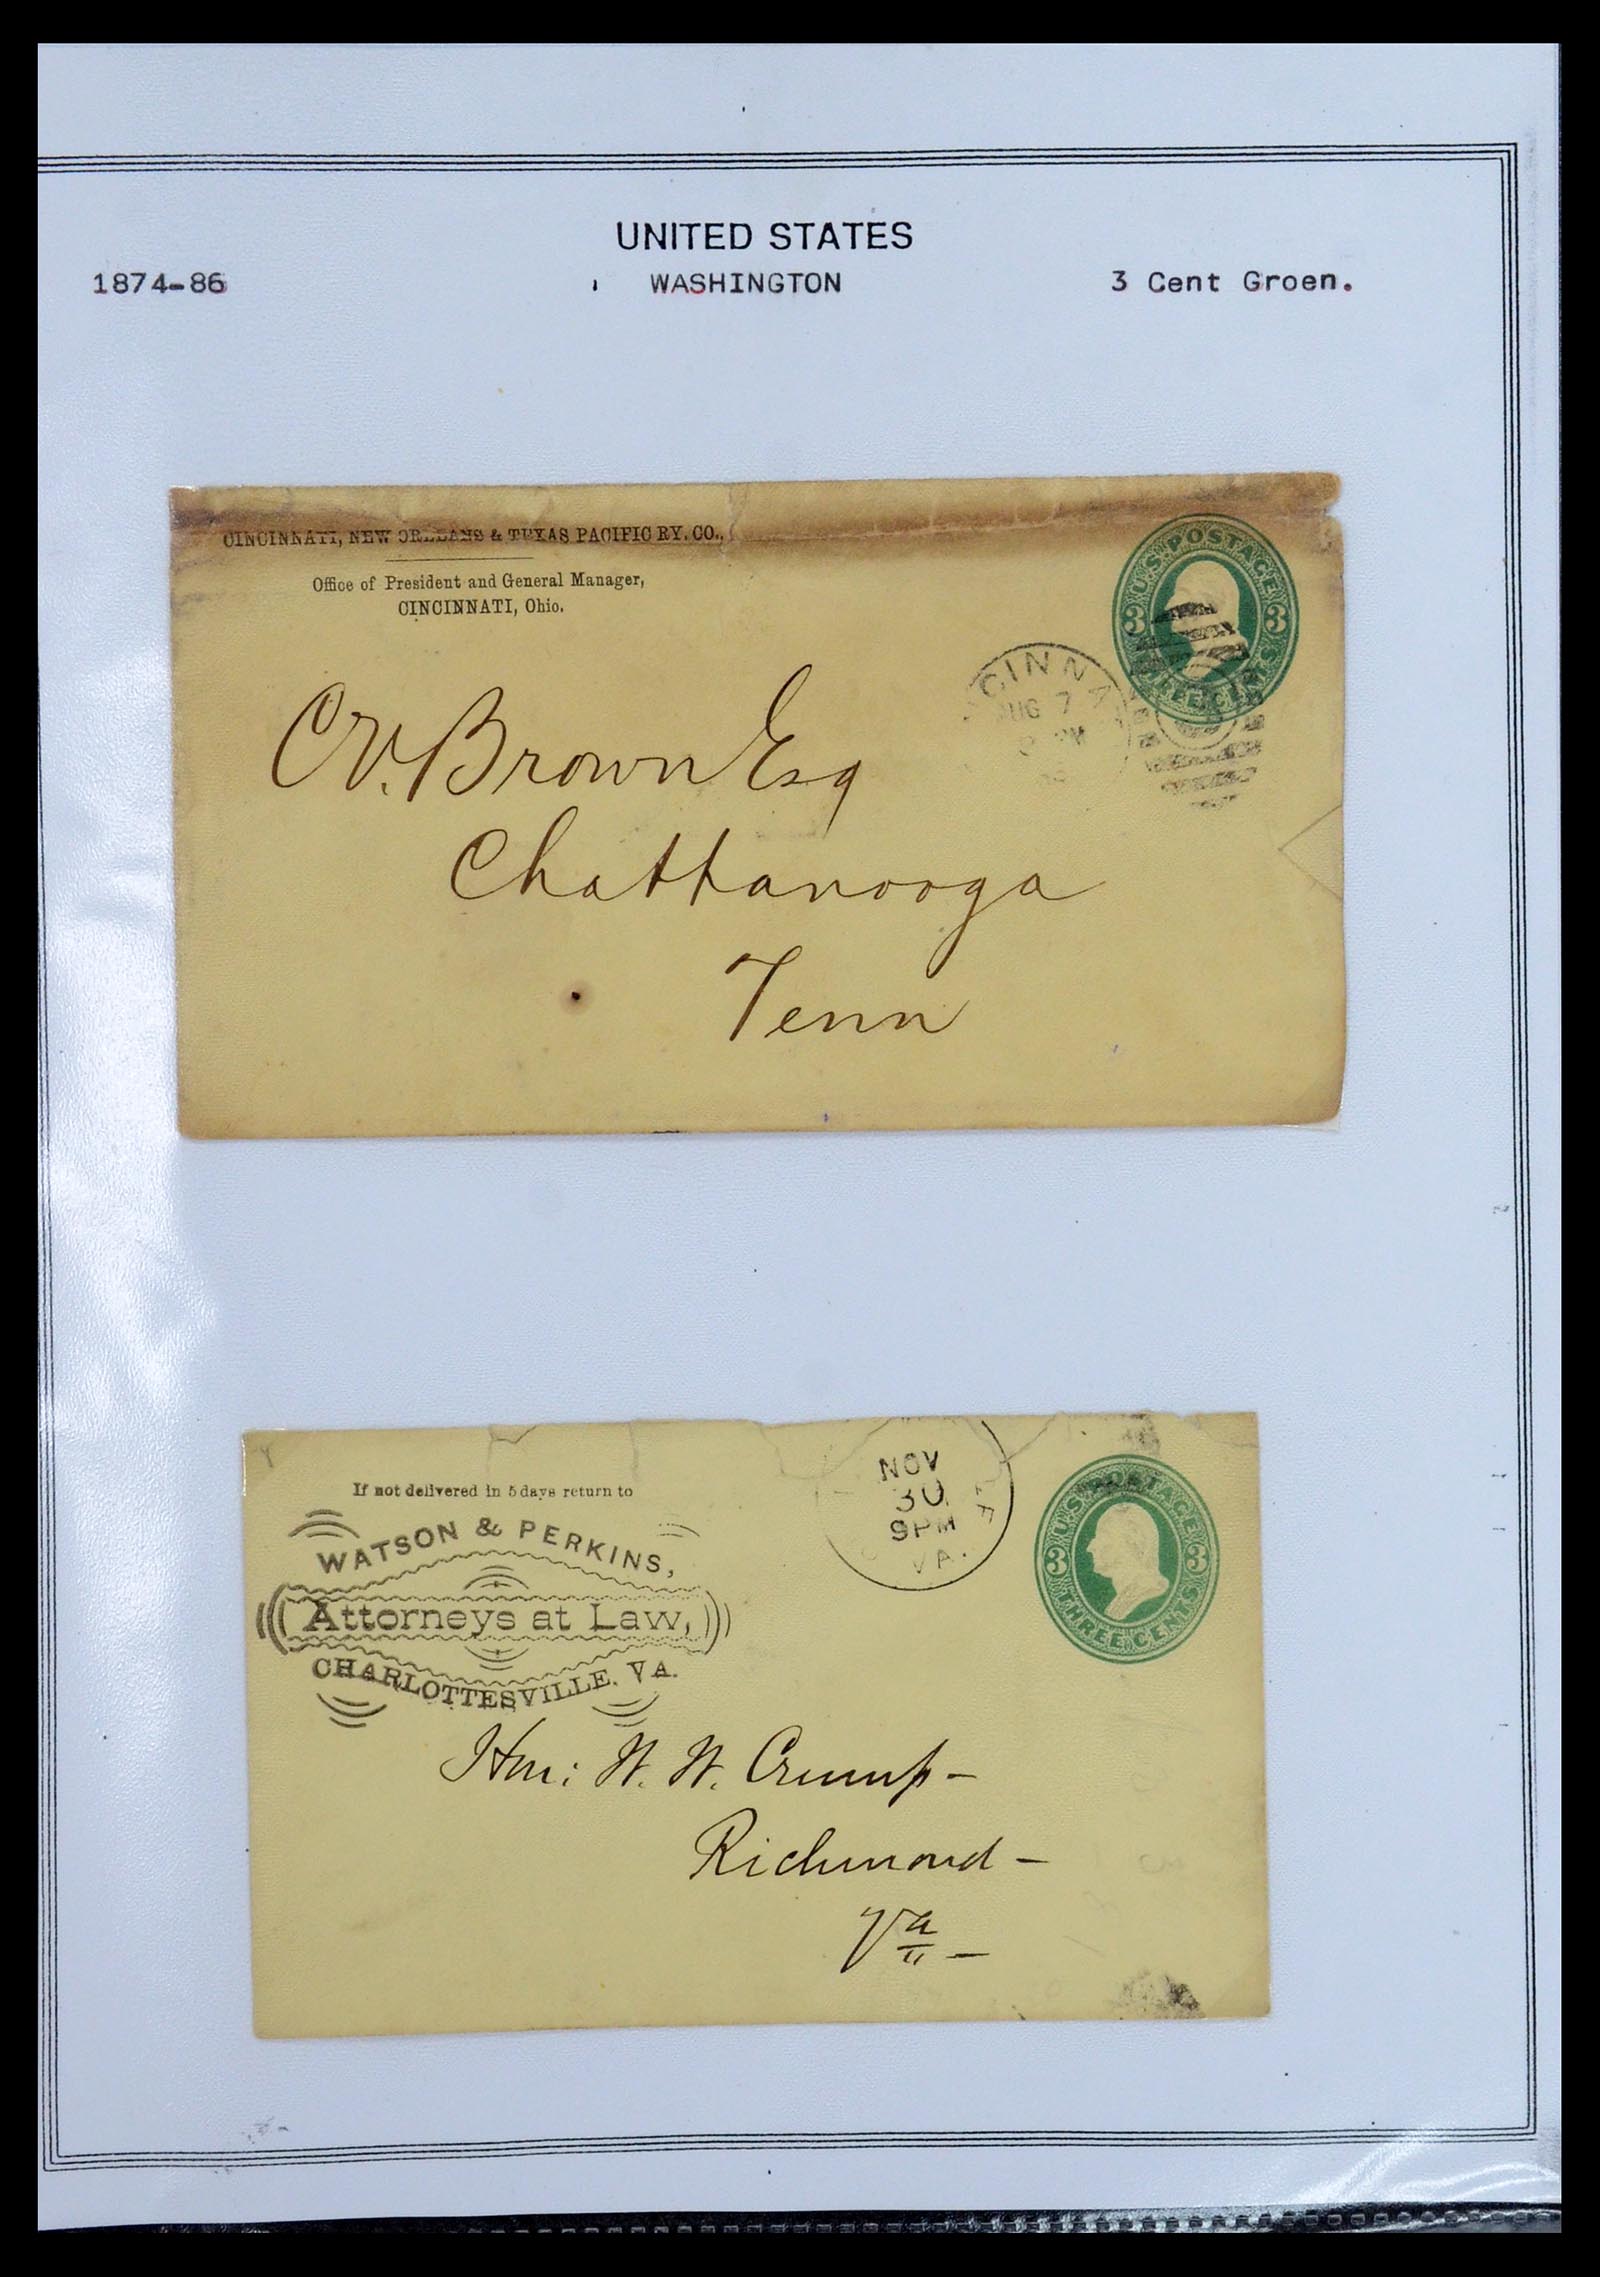 UNITED STATES
1874-86 WASHINGTON 3 Cent Groen.
CINCINNATI, NEW ORLEANS & TEXAS PACIFIC RY. CO.,
Office of President and General Manager,
CINCINNATI, Ohio.
U.S. POSTAGE
3 3
THREE CENTS
CINNA
AUG 7
C. V. Brown Esq
Chattanooga
Tenn
If not delivered in 5 days return to
WATSON & PERKINS,
Attorneys at Law,
CHARLOTTESVILLE, VA.
NOV
30
9 PM
VA.
U.S. POSTAGE
3 3
THREE CENTS
Hon: W. W. Crump –
Richmond –
Va –